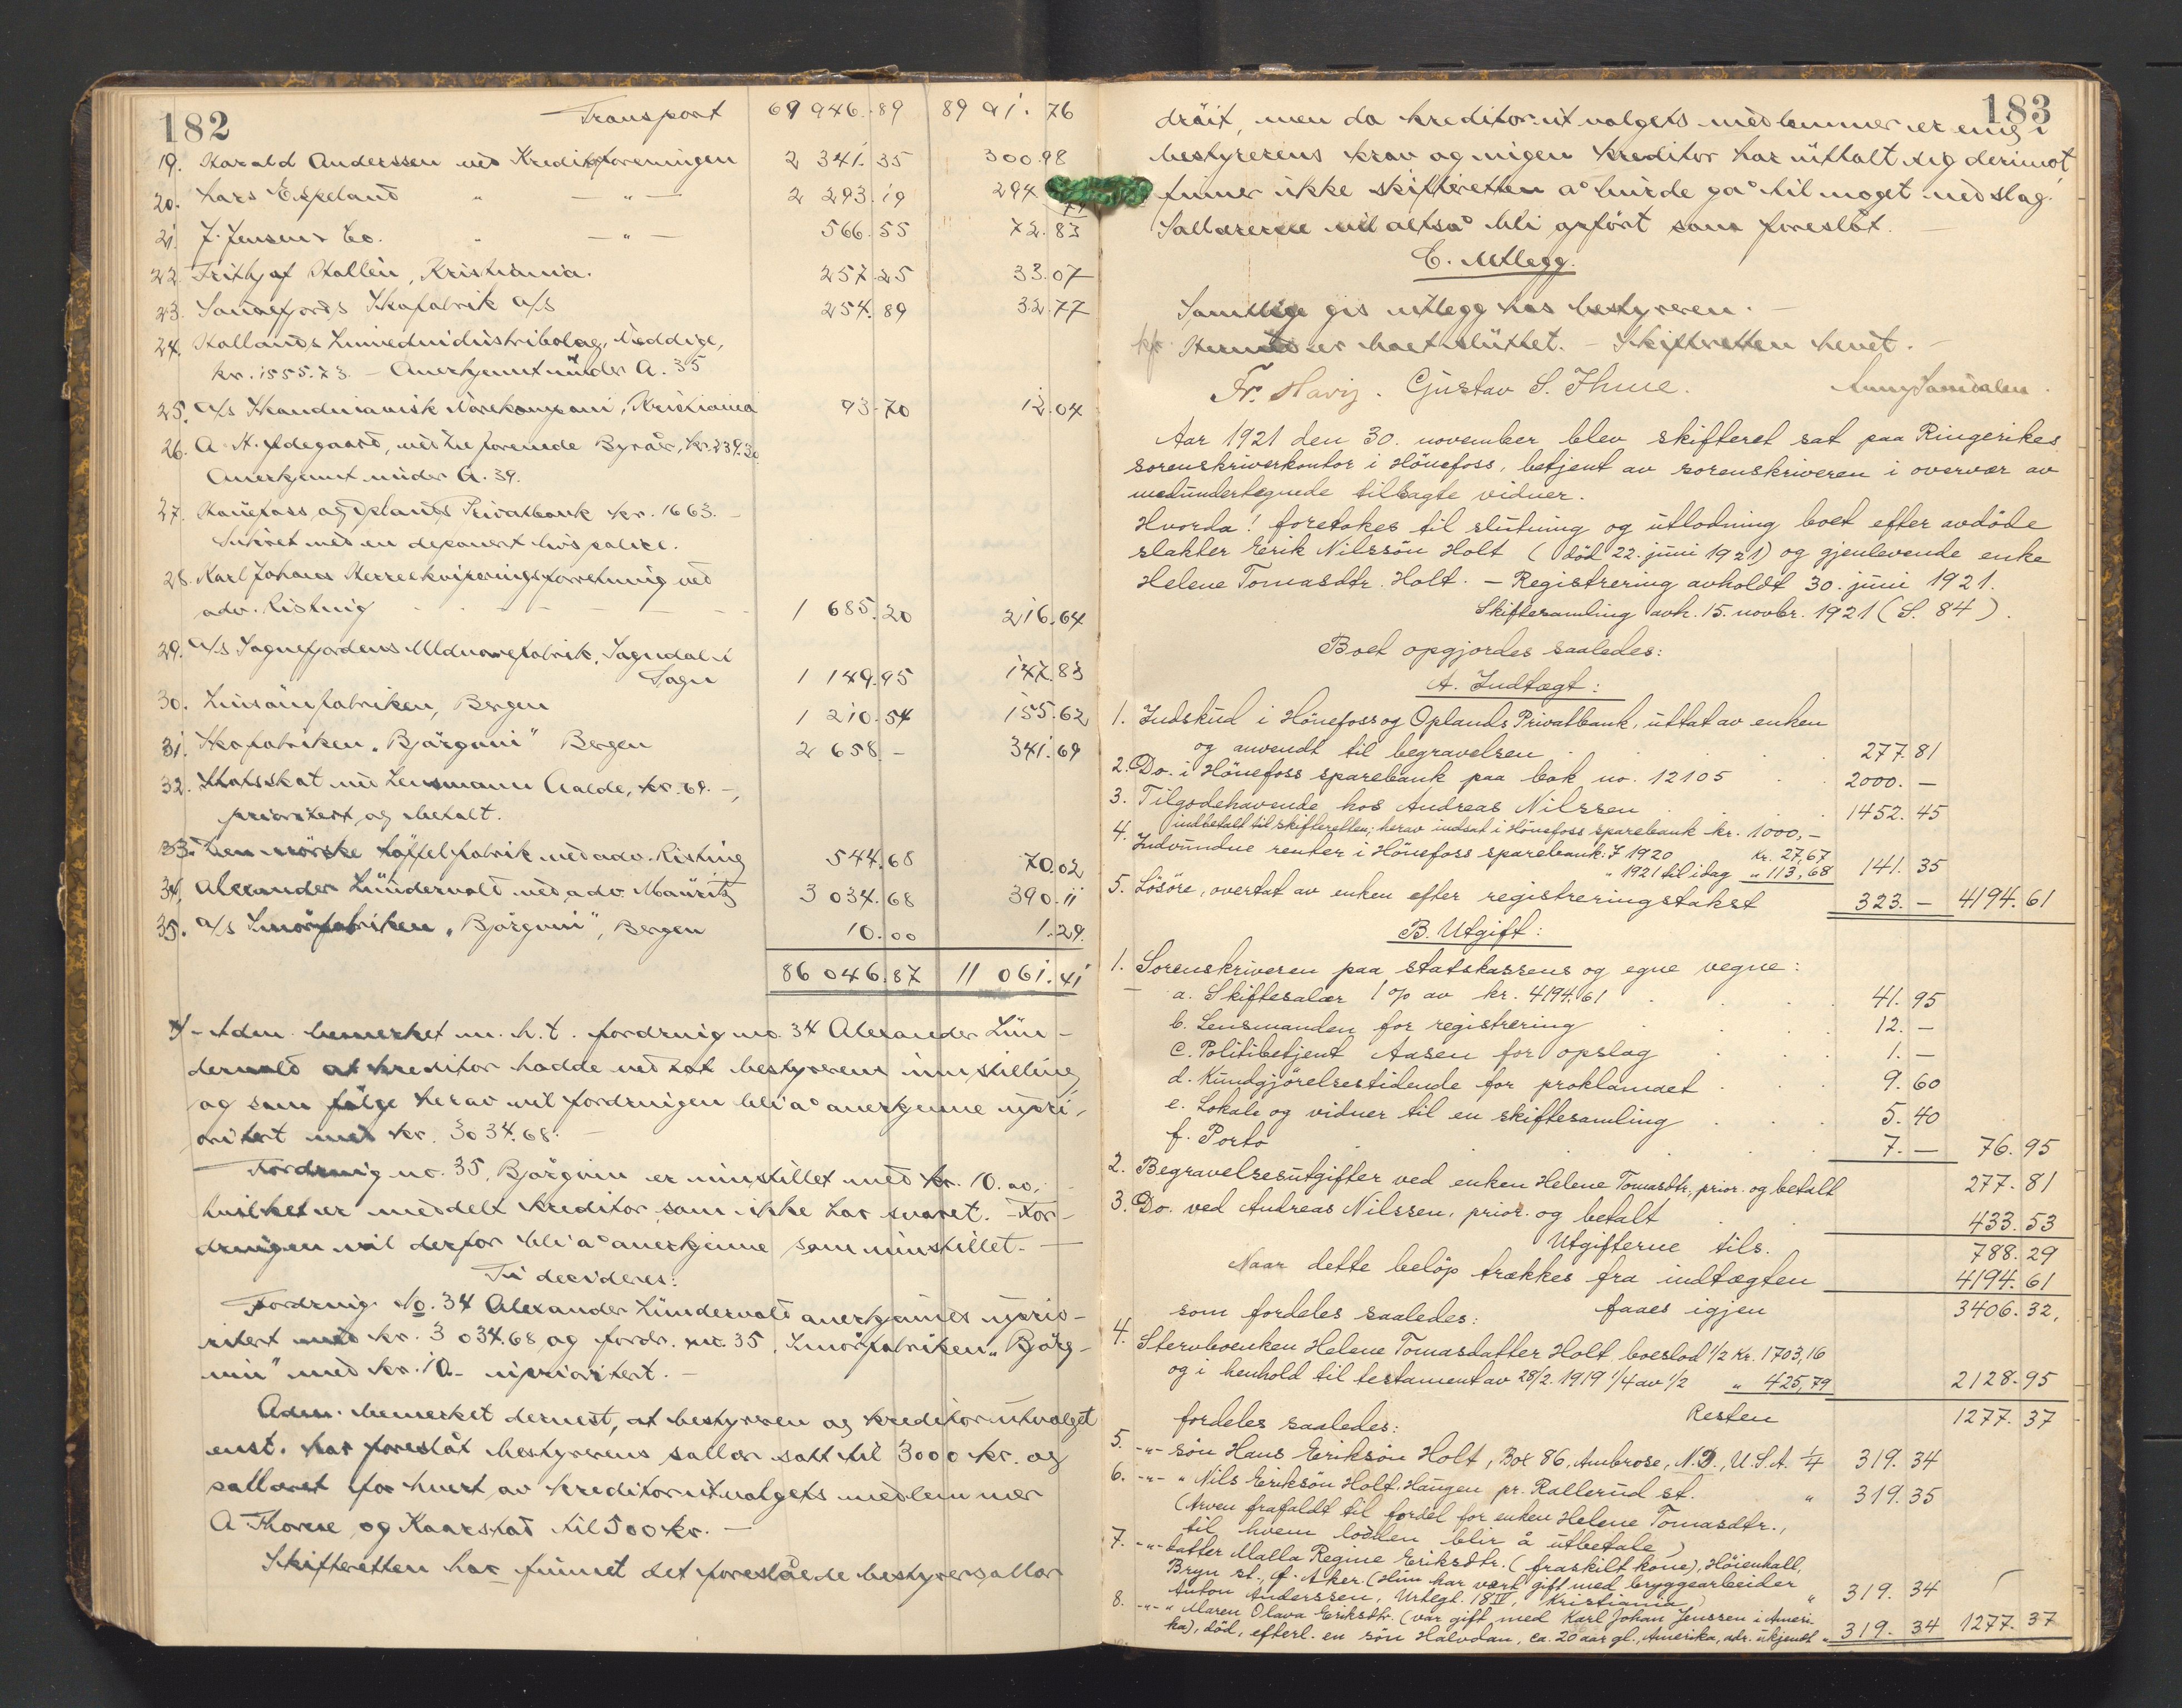 182
Transport 69 946.89 89 91.76
19. Harald Anderssen ved Kreditforeningen 2 341.35 300.98
20. Lars Espeland " — " — 2 293.19 294.
21. J. Jensen & Co. " — " — 566.55 72.83
22. Frithjof Hallén, Kristiania. 257.25 33.07
23. Sandefjords Skofabrik A/S 254.89 32.77
24. Hallands Linnedindustribolag, Veddige,
kr. 1555.73. – Anerkjent under A. 35
25. A/S Skandinavisk Varekompani, Kristiania 93.70 12.04
26. A. H. Ødegaard, ved De forenede Byråer, kr. 239.30
Anerkjent under A. 39.
27. Hønefoss og Oplands Privatbank kr. 1663. –
Sikret med en deponert livspolice.
28. Karl Johans Herreekviperingsforretning ved
adv. Risting 1 685.20 216.64
29. A/S Sognefjordens Uldvarefabrik, Sogndal i
Sogn 1 149.95 147.83
30. Linsömfabriken, Bergen 1 210.54 155.62
31. Skofabriken "Bjørgvin" Bergen 2 658 – 341.69
32. Statsskat ved Lensmann Aalde, kr. 69. –,
prioritert og betalt.
33. Den norske tøffelfabrik ved adv. Risting 544.68 70.02
34. Alexander Lundervold ved adv. Mauritz 3 034.68 390.11
35. A/S Smörfabriken "Bjørgvin", Bergen 10.00 1.29.
86 046.87 11 061.41
Adm. bemerket m. h. t. fordring no. 34 Alexander Lun-
dervold at kreditor hadde vedtat bestyrerens innstilling,
og som følge herav vil fordringen bli å anerkjenne upri-
oritert med kr. 3034.68. –
Fordring no. 35, Bjørgvin er innstillet med kr. 10.00,
hvilket er meddelt kreditor som ikke har svaret. – For-
dringen vil derfor bli å anerkjenne som innstillet. –
Ti decideres:
Fordring No. 34 Alexander Lundervold anerkjennes uprio-
ritert med kr. 3 034.68 og fordr. no. 35, Smørfabriken "Bjørg-
vin" med kr. 10.– uprioritert. –
Adm. bemerket dernest, at bestyreren og kreditorutvalget
enst. har foreslåt bestyrerens sallær satt til 3000 kr. og
sallæret for hvert av kreditorutvalgets medlemmer
A. Thorese og Kaarstad til 500 kr. –
Skifteretten har funnet det foreslåede bestyrersallær
183
drøit, men da kreditorutvalgets medlemmer er enig i
bestyrerens krav og ingen kreditor har uttalt sig derimot,
finner ikke skifteretten å burde gå til noget nedslag.
Sallærerne vil altså bli opført som foreslåt. –
C. Utlegg.
Samtlige gis utlegg hos bestyreren. –
Hermed er boet sluttet. – Skifteretten hevet. –
Fr. Havig. Gustav S. Thue.
Aar 1921 den 30. november blev skifteret sat paa Ringerikes
sorenskriverkontor i Hönefoss, betjent av sorenskriveren i overvær av
medundertegnede tilsagte vidner.
Hvorda: foretokes til slutning og utlodning boet efter avdöde
slakter Erik Nilssön Holt (död 22. juni 1921) og gjenlevende enke
Helene Tomasdtr. Holt. – Registrering avholdt 30. juni 1921.
Skiftesamling avh. 15. novbr. 1921 (S. 84).
Boet opgjordes saaledes:
A. Indtægt:
1. Indskud i Hönefoss og Oplands Privatbank, uttat av enken
og anvendt til begravelsen 277.81
2. Do. i Hönefoss sparebank paa bok no. 12105 2000. –
3. Tilgodehavende hos Andreas Nilssen 1452.45
indbetalt til skifteretten; herav indsat i Hönefoss sparebank kr. 1000,–
4. Indvundne renter i Hönefoss sparebank: F 1920 Kr. 27,67
" 1921 til idag " 113,68 141.35
5. Lösöre, overtat av enken efter registreringstakst 323. – 4194.61
B. Utgift:
1. Sorenskriveren paa statskassens og egne vegne:
a. Skiftesalær 1 % av kr. 4194.61 41.95
b. Lensmanden for registrering 12. –
c. Politibetjent Aasen for opslag 1. –
d. Kundgjörelsestidende for proklamaet 9.60
e. Lokale og vidner til en skiftesamling 5.40
f. Porto 7. – 76.95
2. Begravelsesutgifter ved enken Helene Tomasdtr, prior. og betalt 277.81
3. Do. ved Andreas Nilssen, prior. og betalt 433.53
Utgifterne tils. 788.29
Naar dette belöp trækkes fra indtægten 4194.61
faaes igjen 3406.32,
som fordeles saaledes:
4. Stervboenken Helene Tomasdatter Holt, boeslod 1/2 Kr. 1703,16
og i henhold til testament av 28/2. 1919 1/4 av 1/2 " 425,79 2128.95
Resten 1277.37
fordeles saaledes:
5. -"- sön Hans Eriksön Holt, Box 86, Ambrose, N.D., U.S.A. 1/4 319.34
6. -"- " Nils Eriksön Holt, Haugen pr. Rallerud st. " 319.35
(Arven frafaldt til fordel for enken Helene Tomasdtr.,
til hvem lodden blir å utbetale)
7. -"- datter Malla Regine Eriksdtr. (fraskilt kone), Höienhall,
Bryn st., Ö. Aker. (Hun har vært gift med bryggearbeider
Anton Anderssen, Urtegt. 18 IV, Kristiania) " 319.34
8. -"- " Maren Olava Eriksdtr. (var gift med Karl Johan Jenssen i Ameri-
ka), död, efterl. en sön Halvdan, ca. 20 aar gl., Amerika, adr. ukjendt " 319.34 1277.37